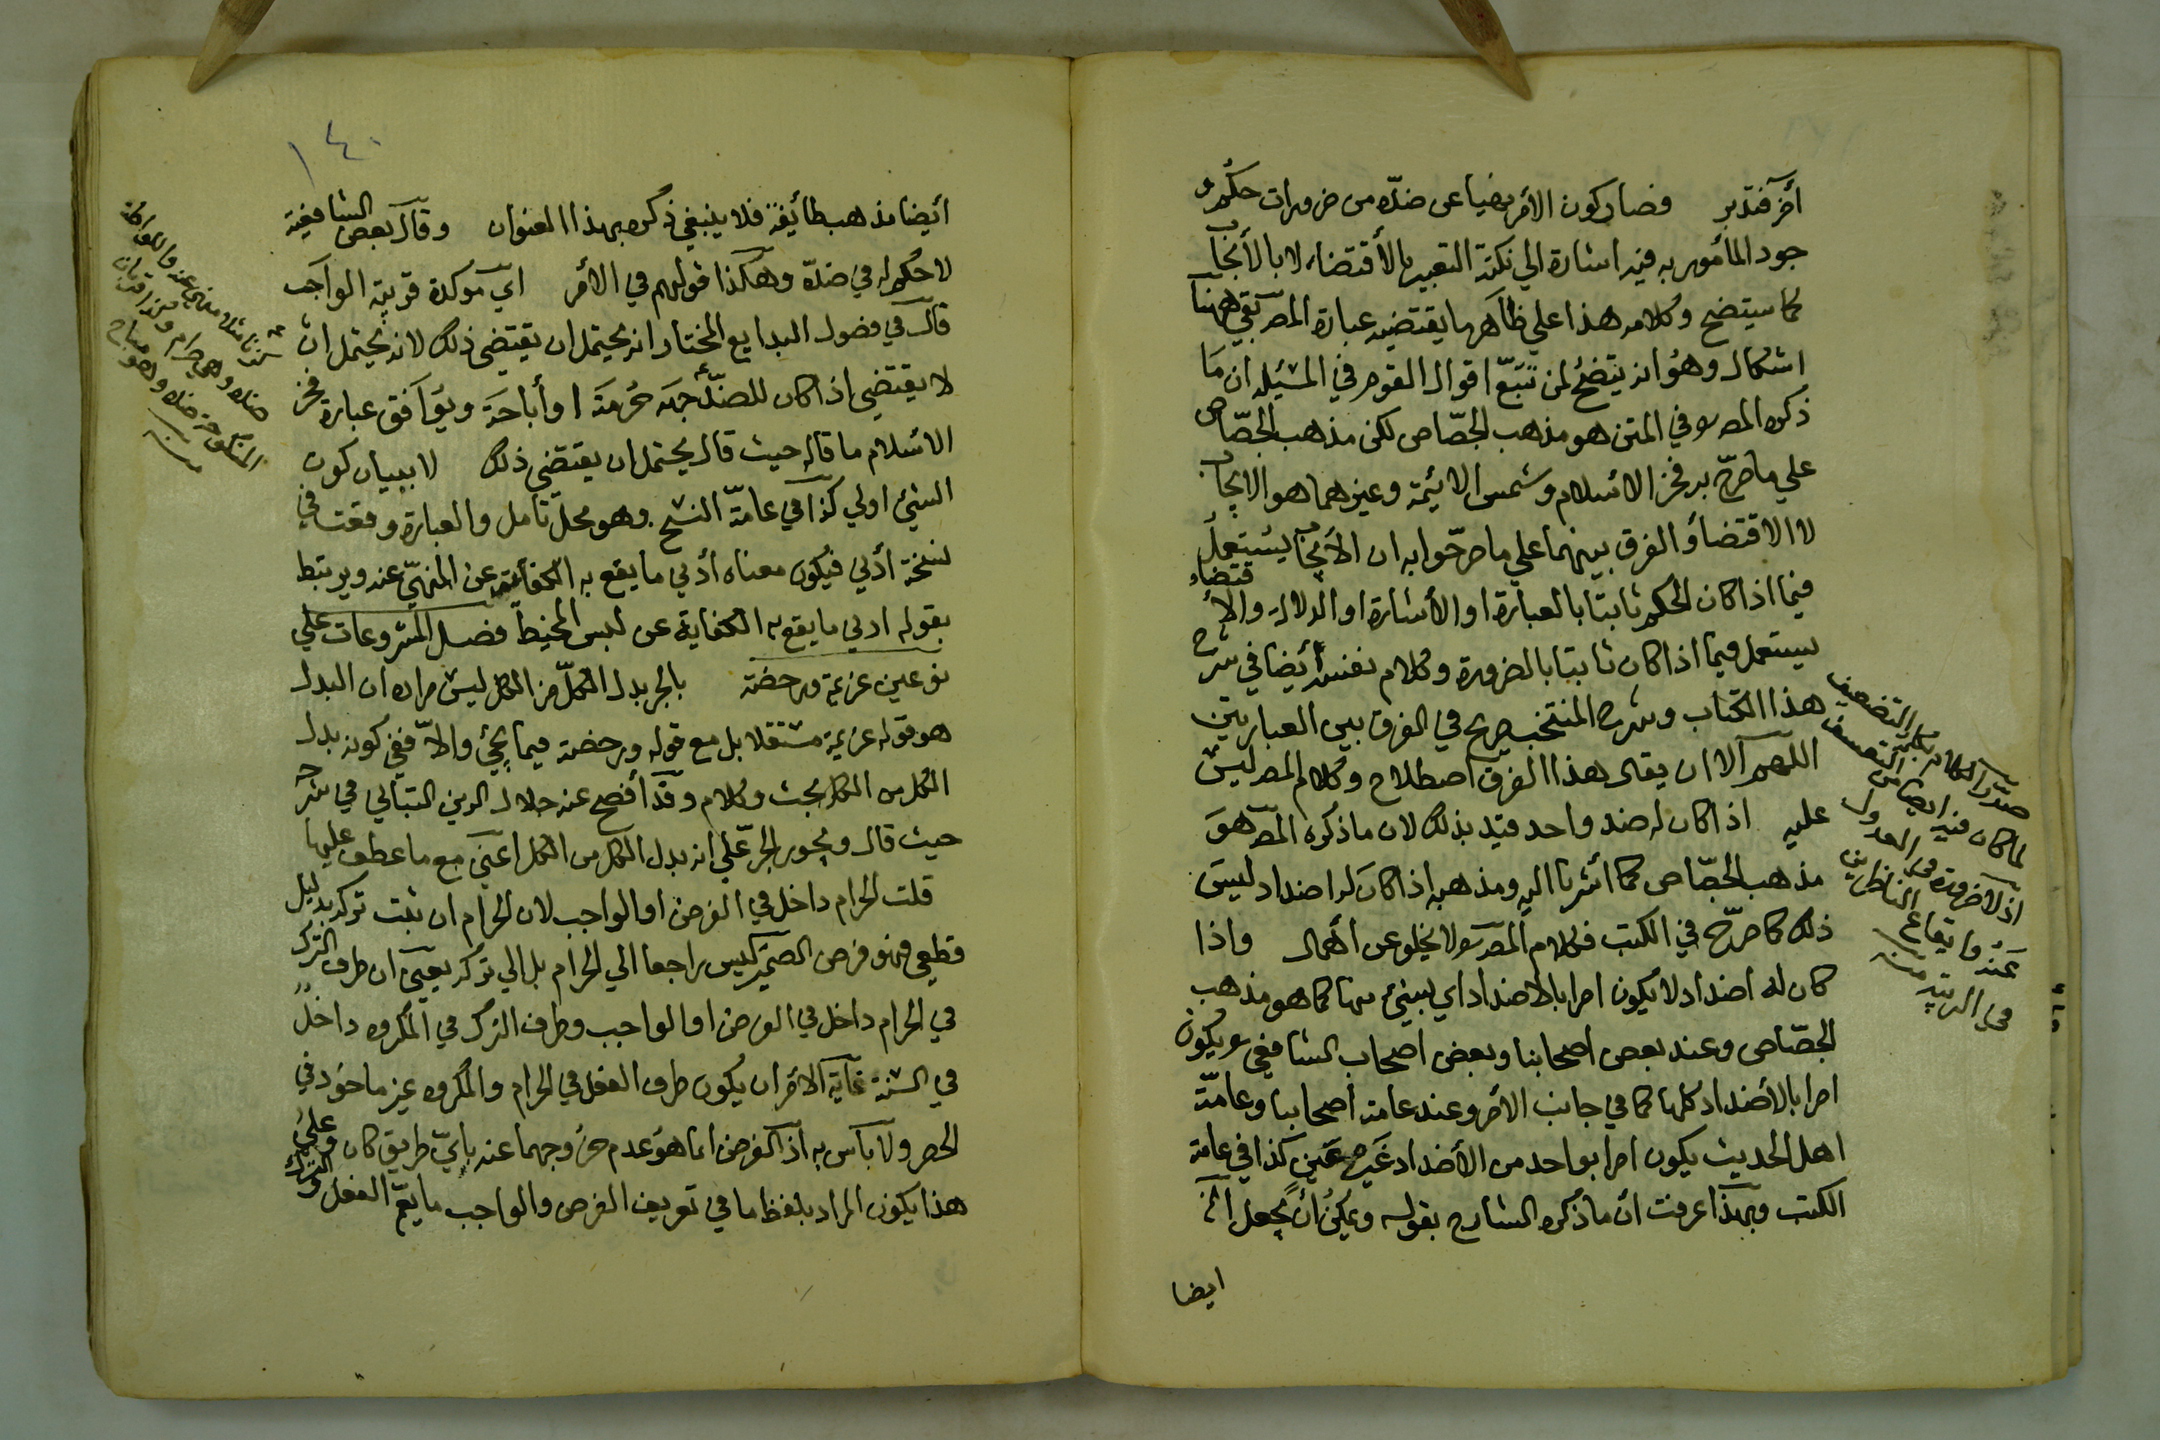 أخر فتدبر وصار كون الأمر نهيا عن ضدّه من ضرورات حكم و
جود المأمور به فيه اشارة الي نكتة التعبير بالأقتضاء لا بالأيجاب
كما سيتضح وكلامه هذا علي ظاهر ما يقتضيه عبارة المصـ بقي ههنا
اشكال وهو انه يتضح لمن تتبّع اقوال القوم في المسئلة ان ما
ذكره المصـ في المتن هو مذهب الجصّاص لكن مذهب الجصّاص
علي ما صرّح به فخر الاسلام وشمس الائيمة وغيرهما هو الايجاب
لا الاقتضاء والفرق بينهما علي ما صرّحوا به ان الأيجاب يستعمل
فيما اذا كان الحكم ثابتا بالعبارة او الأشارة او الدلالة والاقتضاء
يستعمل فيما اذا كان ثابتا بالضرورة وكلام نفسه أيضا في شرح
هذا الكتاب وشرح المنتخب صريح في الفرق بين العبارتين
اللهم الا ان يقال هذا الفرق اصطلاح وكلام المصـ ليس
عليه اذا كان له ضد واحد قيد بذلك لان ما ذكره المصـ هو
مذهب الجصّاص كما أشرنا اليه ومذهبه اذا كان له اضداد ليس
ذلك كما صرّح في الكتب فكلام المصـ لا يخلو عن أهمال واذا
كان له اضداد لا يكون امرا بالاضداد اي بشيئ منها كما هو مذهب
الجصّاص وعند بعض اصحابنا وبعض اصحاب الشافعي يكون
امرا بالأضداد كلها كما في جانب الأمر وعند عامة أصحابنا وعامّة
اهل الحديث يكون امرا بواحد من الأضداد غير عين كذا في عامة
الكتب وبهذا عرفت أن ما ذكره الشارح بقوله ويمكن أن يجعل الخ
ايضا
صدّر الكلام بكلمة التضعيف
لما كان فيه ايضا من التعسف
اذ لا ضرورة في العدول
عنه وايقاع الناظرين
في الريبة منه
١٤٠
أيضا مذهب طائفة فلا ينبغي ذكره بهذا العنوان وقال بعض الشافعية
لا حكم له في ضدّه وهكذا قولهم في الأمر اي مؤكدة قريبة الواجب
قال في فصول البدايع المختار انه يحتمل ان يقتضي ذلك لانه يحتمل ان
لا يقتضي اذا كان للضدّ جهة حرمة او أباحة ويوافق عبارة فخر
الاسلام ما قاله حيث قال يحتمل ان يقتضي ذلك لا ببيان كون
الشيئ اولي كذا في عامّة النسخ وهو محلّ تأمل والعبارة وقعت في
نسخة أدني فيكون معناه أدني ما يقع به الكفاية عن المنهيّ عنه ويرتبط
بقوله ادني ما يقع به الكفاية عن لبس المخيط فصل المشروعات علي
نوعين عزيمة ورخصة بالجر بدل الكلّ من الكل ليس مراده ان البدل
هو قوله عزيمة مستقلا بل مع قوله ورخصة فيما يجيئ والاّ ففي كونه بدل
الكل من الكل بحث وكلام وقد أفصح عنه جلال الدين التباني في شرحه
حيث قال ويجوز الجرّ علي انه بدل الكل من الكل اعني مع ما عطف عليها
قلت الحرام داخل في الفرض او الواجب لان الحرام ان ثبت تركه بدليل
قطعي فهو فرض الضمير ليس راجعا الي الحرام بل الي تركه يعني ان طرف الترك
في الحرام داخل في الفرض او الواجب وطرف الترك في المكروه داخل
في السنة غاية الأمر ان يكون طرف الفعل في الحرام والمكروه غير ماخوذ في
الحصر ولا بأس به اذ الغرض انما هو عدم خروجهما عنه بايّ طريق كان وعلي
هذا يكون المراد بلفظ ما في تعريف الفرض والواجب ما يعمّ الفعل والترك